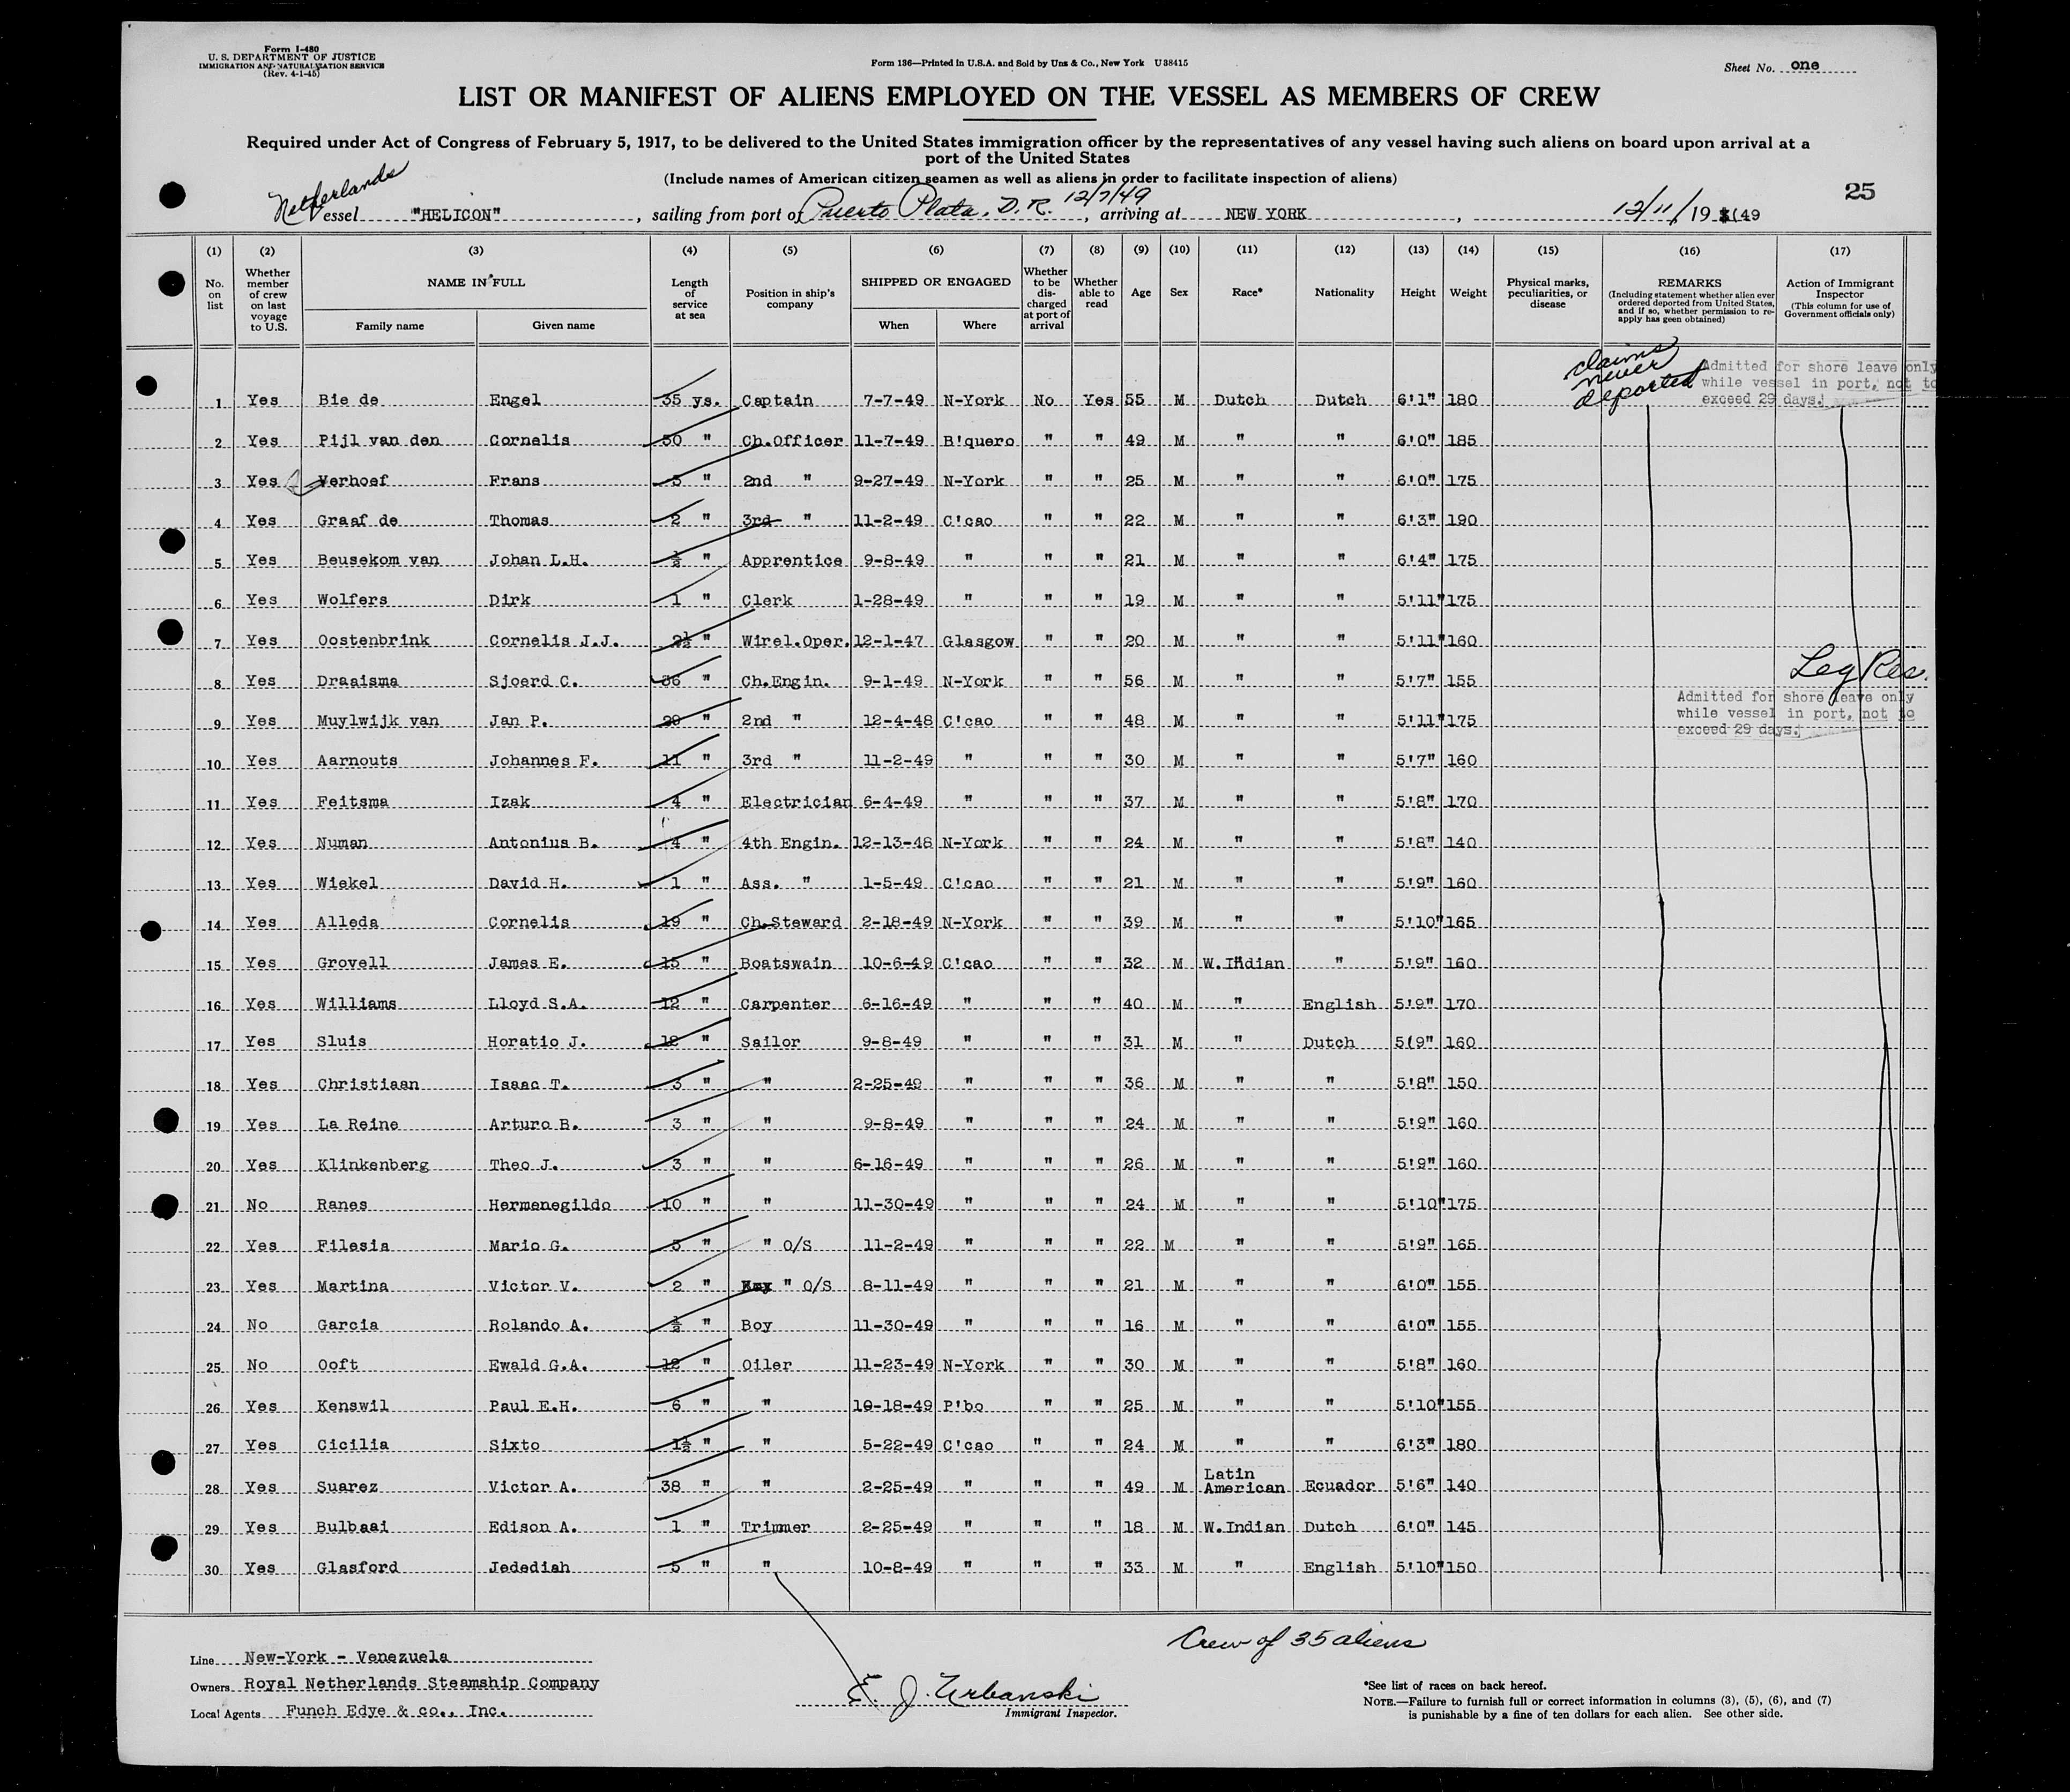 Form I-480
U. S. DEPARTMENT OF JUSTICE
IMMIGRATION AND NATURALIZATION SERVICE
(Rev. 4-1-45)
Form 136—Printed in U.S.A. and Sold by Unz & Co., New York U38415
Sheet No. one
LIST OR MANIFEST OF ALIENS EMPLOYED ON THE VESSEL AS MEMBERS OF CREW
Required under Act of Congress of February 5, 1917, to be delivered to the United States immigration officer by the representatives of any vessel having such aliens on board upon arrival at a
port of the United States
(Include names of American citizen seamen as well as aliens in order to facilitate inspection of aliens)
25
Netherlands
Vessel "HELICON", sailing from port of Puerto Plata, D.R. 12/7/49, arriving at NEW YORK, 12/11/19 49
(1) (2) (3) (4) (5) (6) (7) (8) (9) (10) (11) (12) (13) (14) (15) (16) (17)
No. on list
Whether member of crew on last voyage to U.S.
NAME IN FULL
Family name
Given name
Length of service at sea
Position in ship's company
SHIPPED OR ENGAGED
When
Where
Whether to be discharged at port of arrival
Whether able to read
Age
Sex
Race*
Nationality
Height
Weight
Physical marks, peculiarities, or disease
REMARKS
(Including statement whether alien ever ordered deported from United States, and if so, whether permission to re-apply has geen obtained)
Action of Immigrant Inspector
(This column for use of Government officials only)
claims never deported
Admitted for shore leave only
while vessel in port, not to
exceed 29 days.
1 Yes Bie de Engel 35 ys. Captain 7-7-49 N-York No Yes 55 M Dutch Dutch 6'1" 180
2 Yes Pijl van den Cornelis 30 " Ch.Officer 11-7-49 B'quero " " 49 M " " 6'0" 185
3 Yes Verhoef Frans 5 " 2nd " 9-27-49 N-York " " 25 M " " 6'0" 175
4 Yes Graaf de Thomas 2 " 3rd " 11-2-49 C'cao " " 22 M " " 6'3" 190
5 Yes Beusekom van Johan L.H. ½ " Apprentice 9-8-49 " " " 21 M " " 6'4" 175
6 Yes Wolfers Dirk 1 " Clerk 1-28-49 " " " 19 M " " 5'11" 175
7 Yes Oostenbrink Cornelis J.J. 2½ " Wirel.Oper. 12-1-47 Glasgow " " 20 M " " 5'11" 160
8 Yes Draaisma Sjoerd C. 36 " Ch.Engin. 9-1-49 N-York " " 56 M " " 5'7" 155 Leg Res.
Admitted for shore leave only
while vessel in port, not to
exceed 29 days.
9 Yes Muylwijk van Jan P. 29 " 2nd " 12-4-48 C'cao " " 48 M " " 5'11" 175
10 Yes Aarnouts Johannes F. 11 " 3rd " 11-2-49 " " " 30 M " " 5'7" 160
11 Yes Feitsma Izak 4 " Electrician 6-4-49 " " " 37 M " " 5'8" 170
12 Yes Numan Antonius B. 4 " 4th Engin. 12-13-48 N-York " " 24 M " " 5'8" 140
13 Yes Wiekel David H. 1 " Ass. " 1-5-49 C'cao " " 21 M " " 5'9" 160
14 Yes Alleda Cornelis 19 " Ch.Steward 2-18-49 N-York " " 39 M " " 5'10" 165
15 Yes Grovell James E. 15 " Boatswain 10-6-49 C'cao " " 32 M W.Indian " 5'9" 160
16 Yes Williams Lloyd S.A. 12 " Carpenter 6-16-49 " " " 40 M " English 5'9" 170
17 Yes Sluis Horatio J. 12 " Sailor 9-8-49 " " " 31 M " Dutch 5(9" 160
18 Yes Christiaan Isaac T. 3 " " 2-25-49 " " " 36 M " " 5'8" 150
19 Yes La Reine Arturo B. 3 " " 9-8-49 " " " 24 M " " 5'9" 160
20 Yes Klinkenberg Theo J. 3 " " 6-16-49 " " " 26 M " " 5'9" 160
21 No Ranes Hermenegildo 10 " " 11-30-49 " " " 24 M " " 5'10" 175
22 Yes Filesia Mario G. 3 " " O/S 11-2-49 " " " 22 M " " 5'9" 165
23 Yes Martina Victor V. 2 " " O/S 8-11-49 " " " 21 M " " 6'0" 155
24 No Garcia Rolando A. ½ " Boy 11-30-49 " " " 16 M " " 6'0" 155
25 No Ooft Ewald G.A. 12 " Oiler 11-23-49 N-York " " 30 M " " 5'8" 160
26 Yes Kenswil Paul E.H. 6 " " 10-18-49 P'bo " " 25 M " " 5'10" 155
27 Yes Cicilia Sixto 1½ " " 5-22-49 C'cao " " 24 M " " 6'3" 180
28 Yes Suarez Victor A. 38 " " 2-25-49 " " " 49 M Latin American Ecuador 5'6" 140
29 Yes Bulbaai Edison A. 1 " Trimmer 2-25-49 " " " 18 M W.Indian Dutch 6'0" 145
30 Yes Glasford Jedediah 5 " " 10-8-49 " " " 33 M " English 5'10" 150
Crew of 35 aliens
Line New-York - Venezuela
Owners Royal Netherlands Steamship Company
Local Agents Funch Edye & co., Inc.
E. J. Urbanski
Immigrant Inspector.
*See list of races on back hereof.
NOTE.—Failure to furnish full or correct information in columns (3), (5), (6), and (7)
is punishable by a fine of ten dollars for each alien. See other side.